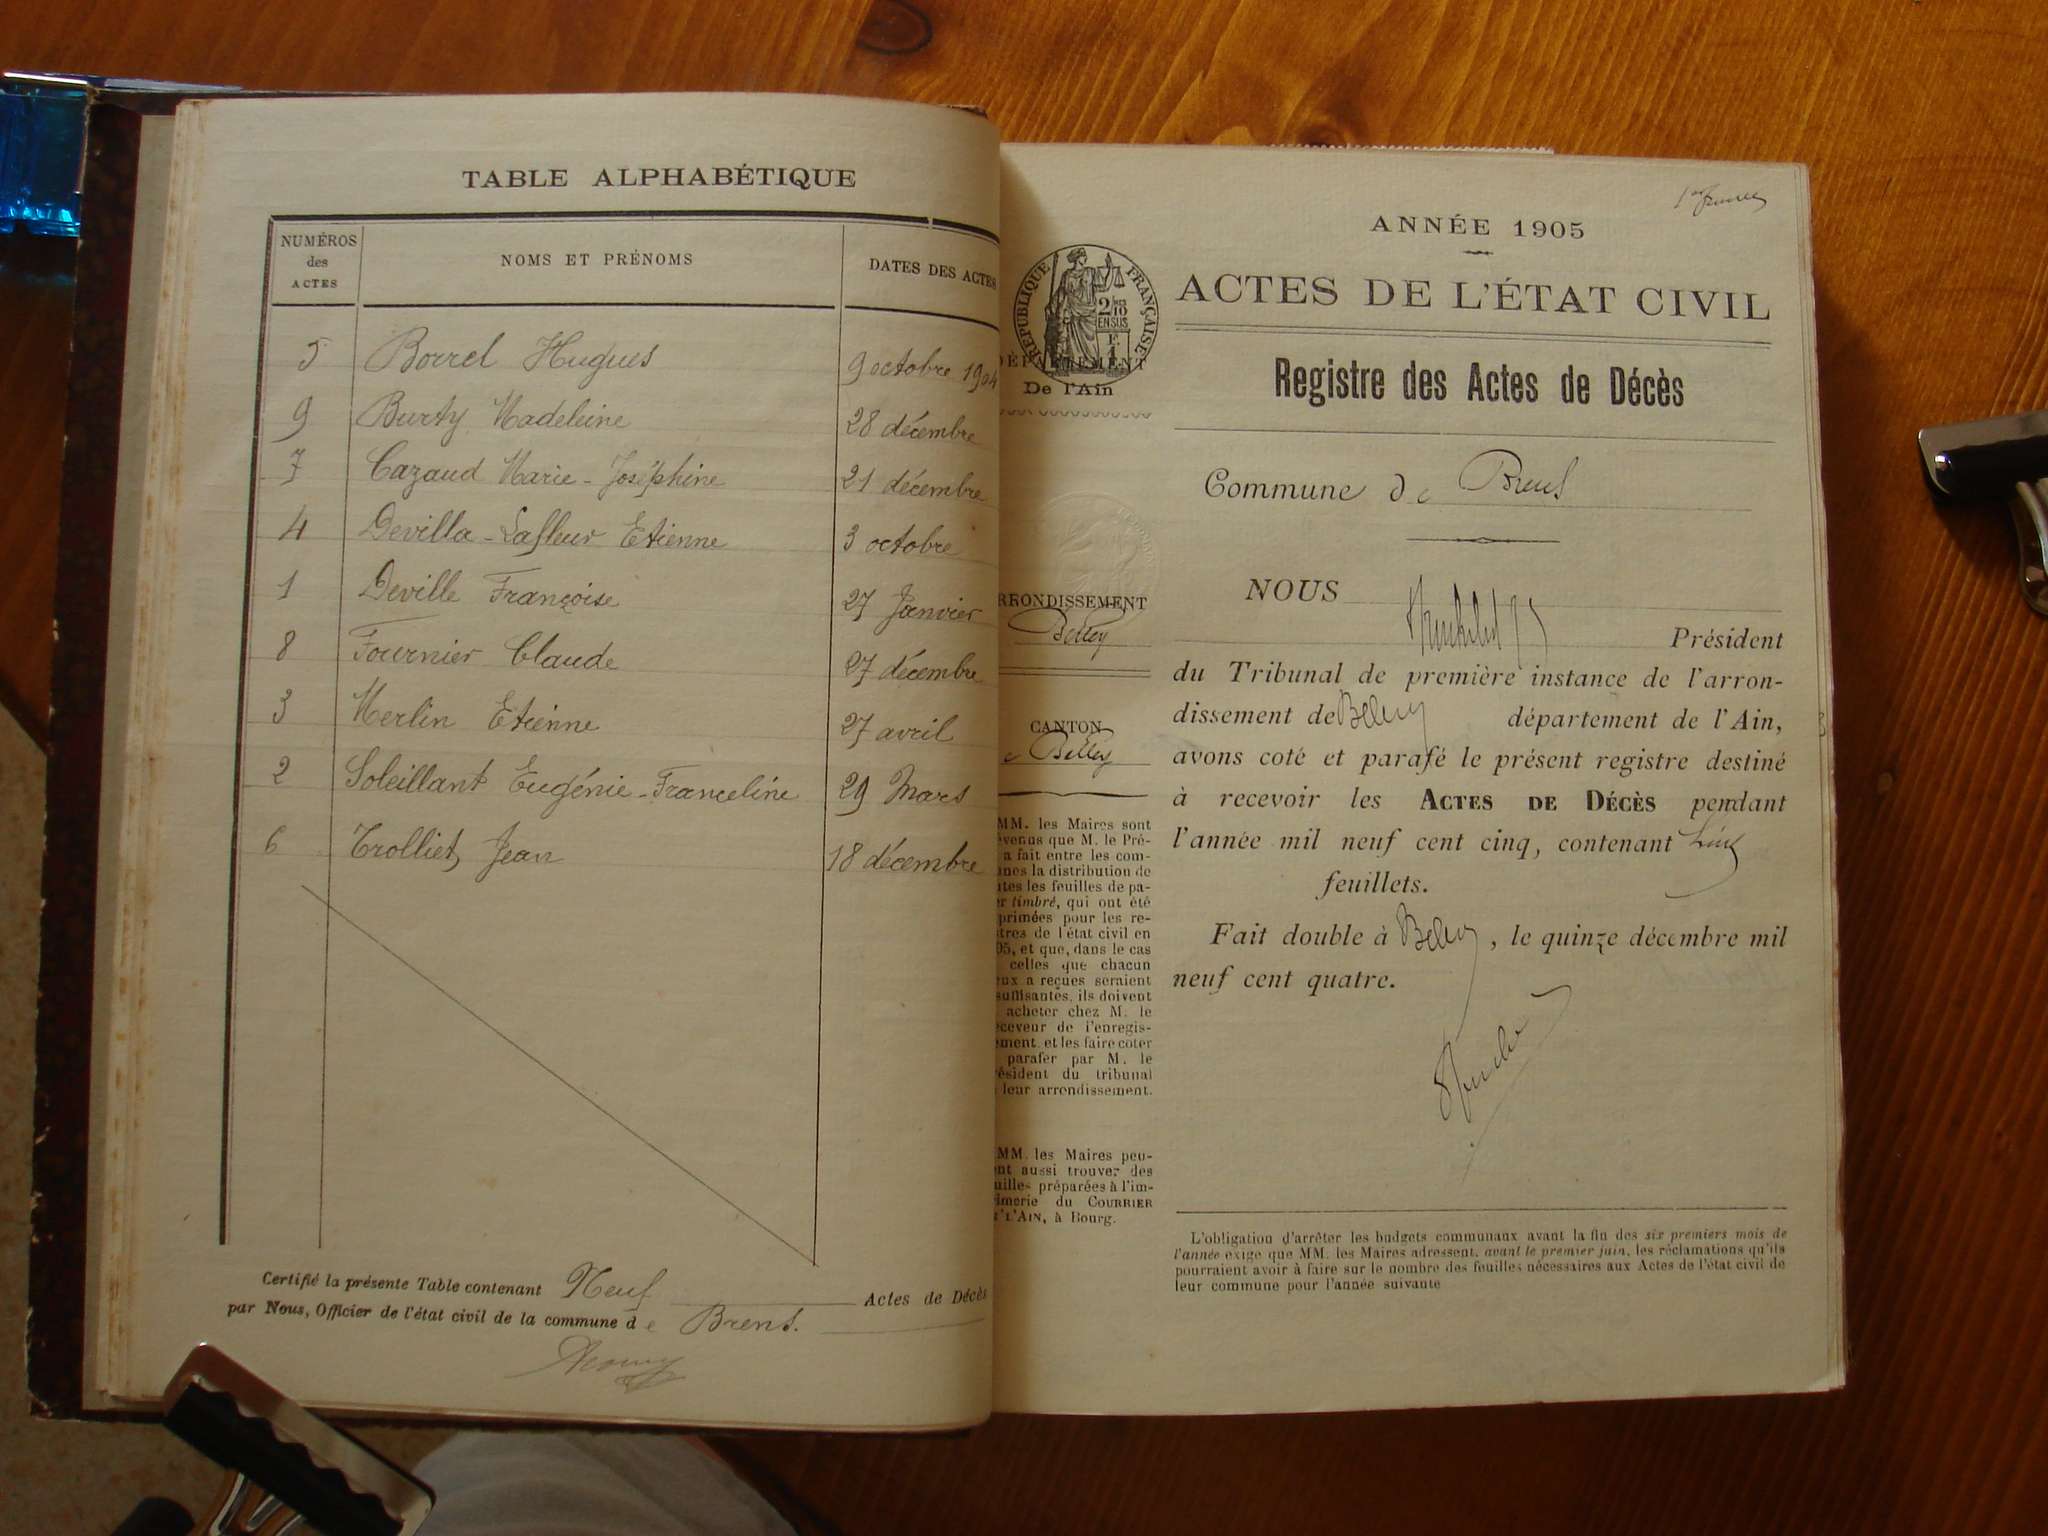 TABLE ALPHABÉTIQUE
NUMÉROS des ACTES NOMS ET PRÉNOMS DATES DES ACTES
5 Borrel Hugues 9 octobre 1904
9 Burty Madeleine 28 décembre
7 Cazaud Marie-Joséphine 21 décembre
4 Devilla-Lafleur Etienne 3 octobre
1 Deville Françoise 27 Janvier
8 Fournier Claude 27 décembre
3 Merlin Etienne 27 avril
2 Soleillant Eugénie-Franceline 29 Mars
6 Trolliet Jean 18 décembre
Certifié la présente Table contenant Neuf Actes de Décès
par Nous, Officier de l'état civil de la commune de Brens.
RÉPUBLIQUE FRANÇAISE
2/10 EN SUS
DÉPARTEMENT
De l'Ain
RRONDISSEMENT
Belley
CANTON
e Belley
MM. les Maires sont
evenus que M. le Pré-
a fait entre les com-
unes la distribution de
utes les feuilles de pa-
er timbré, qui ont été
primées pour les re-
stres de l'état civil en
05, et que, dans le cas
celles que chacun
eux a reçues seraient
suffisantes, ils doivent
acheter chez M. le
eceveur de l'enregis-
ement et les faire coter
parafer par M. le
résident du tribunal
leur arrondissement.
MM. les Maires peu-
ent aussi trouver des
uilles préparées à l'im-
imerie du COURRIER
L'AIN, à Bourg.
ANNÉE 1905
ACTES DE L'ÉTAT CIVIL
Registre des Actes de Décès
Commune de Brens
NOUS
Président
du Tribunal de première instance de l'arron-
dissement de Belley département de l'Ain,
avons coté et parafé le présent registre destiné
à recevoir les ACTES DE DÉCÈS pendant
l'année mil neuf cent cinq, contenant cinq
feuillets.
Fait double à Belley, le quinze décembre mil
neuf cent quatre.
L'obligation d'arrêter les budgets communaux avant la fin des six premiers mois de
l'année exige que MM. les Maires adressent, avant le premier juin, les réclamations qu'ils
pourraient avoir à faire sur le nombre des feuilles nécessaires aux Actes de l'état civil de
leur commune pour l'année suivante